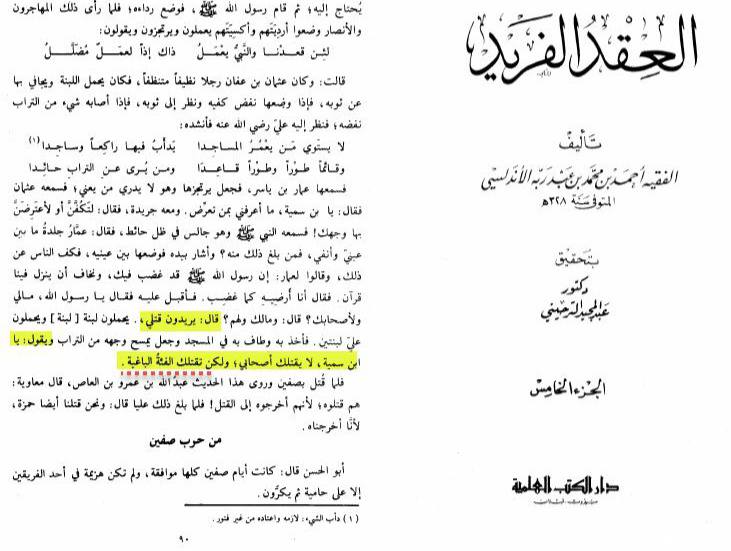 العِقدُ الفَريد
تأليف
الفقيه أحمد بن محمد بن عبد ربه الأندلسي
المتوفى سنة ٣٢٨ هـ
بتحقيق
دكتور
عبد المجيد الترحيني
الجزء الخامس
دار الكتب العلمية
بيروت - لبنان
يُحتاج إليه؛ ثم قام رسول الله ﷺ، فوضع رداءه؛ فلما رأى ذلك المهاجرون
والأنصار وضعوا أرديَتَهم وأكسيَتَهم يعملون ويرتجزون ويقولون:
لئِن قعدْنا والنَّبيُّ يعْمَلُ ذاك إذاً لعمَلٌ مُضلَّلُ
قالت: وكان عثمان بن عفان رجلا نظيفاً متنظفاً، فكان يحمل اللبنة ويجافي بها
عن ثوبه، فإذا وضعها نفض كفيه ونظر إلى ثوبه، فإذا أصابه شيء من التراب
نفضه؛ فنظر إليه عليّ رضي الله عنه فأنشده:
لا يستوي مَن يعْمُرُ المساجدا يَدْأبُ فيها راكِعاً وساجدا (١)
وقائماً طوْراً وطوْراً قاعِدَا ومن يُرى عن الترابِ حائِدا
فسمعها عمار بن ياسر، فجعل يرتجزها وهو لا يدري من يعني؛ فسمعه عثمان
فقال: يا بن سمية، ما أعرفني بمن تعرِّض. ومعه جريدة، فقال: لتَكُفَّنَّ أو لأعترضَنَّ
بها وجهك! فسمعه النبي ﷺ وهو جالس في ظل حائط، فقال: عمَّار جلدةُ ما بين
عينيّ وأنفي، فمن بلغ ذلك منه؟ وأشار بيده فوضعها بين عينيه، فكف الناس عن
ذلك، وقالوا لعمار: إن رسول الله ﷺ قد غضب فيك، ونخاف أن ينزل فينا
قرآن. فقال أنا أرضيه كما غضب. فأقبل عليه فقال يا رسول الله، مالي
ولأصحابك؟ قال: ومالك ولهم؟ قال: يريدون قتلي، يحملون لبنة [ لبنة ] ويحملون
عليّ لبنتين. فأخذ به وطاف به في المسجد وجعل يمسح وجهه من التراب ويقول: يا
ابن سمية، لا يقتلك أصحابي؛ ولكن تقتلك الفئةُ الباغية.
فلما قُتل بصفين وروى هذا الحديث عبدُ الله بن عمرو بن العاص، قال معاوية:
هم قتلوه؛ لأنهم أخرجوه إلى القتل! فلما بلغ ذلك عليا قال: ونحن قتلنا أيضا حمزة،
لأنَّا أخرجناه.
من حرب صفين
أبو الحسن قال: كانت أيام صفين كلها موافقة، ولم تكن هزيمة في أحد الفريقين
إلا على حامية ثم يكرُّون.
(١) دأب الشيء: لازمه واعتاده من غير فتور.
٩٠